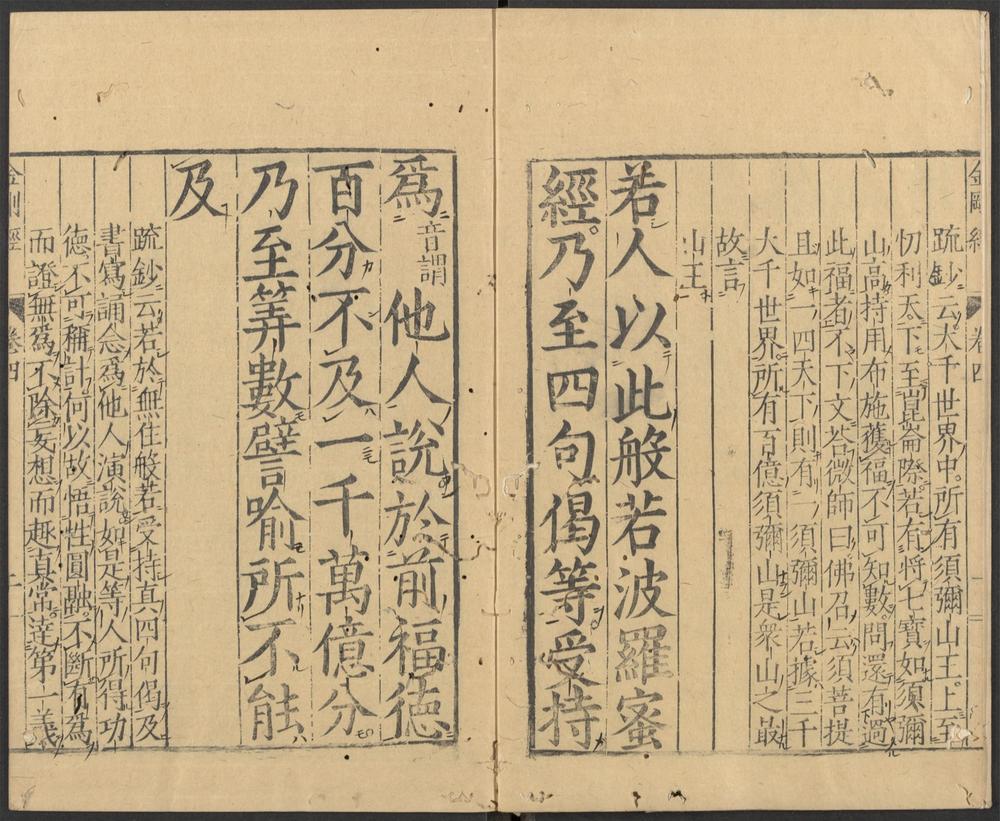 金剛經 卷四 二
疏鈔云大千世界中所有須彌山王上至
忉利天下至崑崙際若有將七寶如須彌
山高持用布施獲福不可知數問還有過
此福者不下文答微師曰佛召云須菩提
且如一四天下則有一須彌山若據三千
大千世界所有百億須彌山是衆山之最
故言
山王
若人以此般若波羅蜜
經乃至四句偈等受持
爲音謂他人說於前福德
百分不及一千萬億分
乃至筭數譬喻所不能
及
疏鈔云若於無住般若受持眞四句偈及
書寫誦念爲他人演說如是等人所得功
德不可稱計何以故悟性圓融不斷有爲
而證無爲不除妄想而趣眞常達第一義
金剛經 卷四